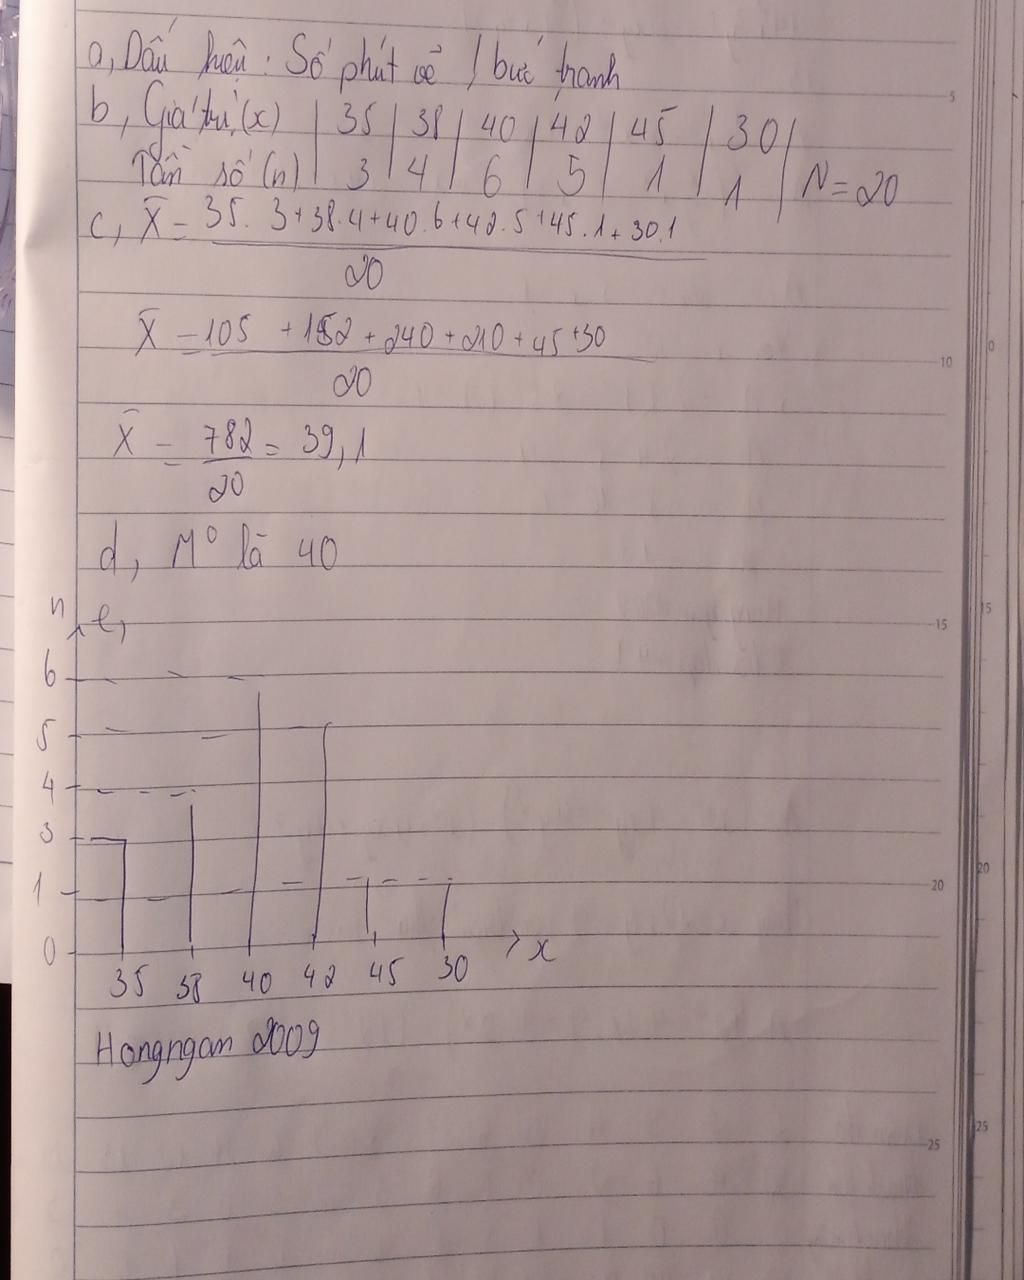 a, Dấu hiệu: Số phút vẽ 1 bức tranh
b, Giá trị (x) | 35 | 38 | 40 | 42 | 45 | 30 |
Tần số (n) | 3 | 4 | 6 | 5 | 1 | 1 | N = 20
c, X̄ = 35. 3+38.4+40.6+42.5+45.1+30.1
20
X̄ = 105 + 152 + 240 + 210 + 45 + 30
20
X̄ = 782 = 39,1
20
d, M⁰ là 40
n
e,
6
5
4
3
1
0
35 38 40 42 45 30 x
Hongngan 2009
5
10
15
20
25
0
15
20
25